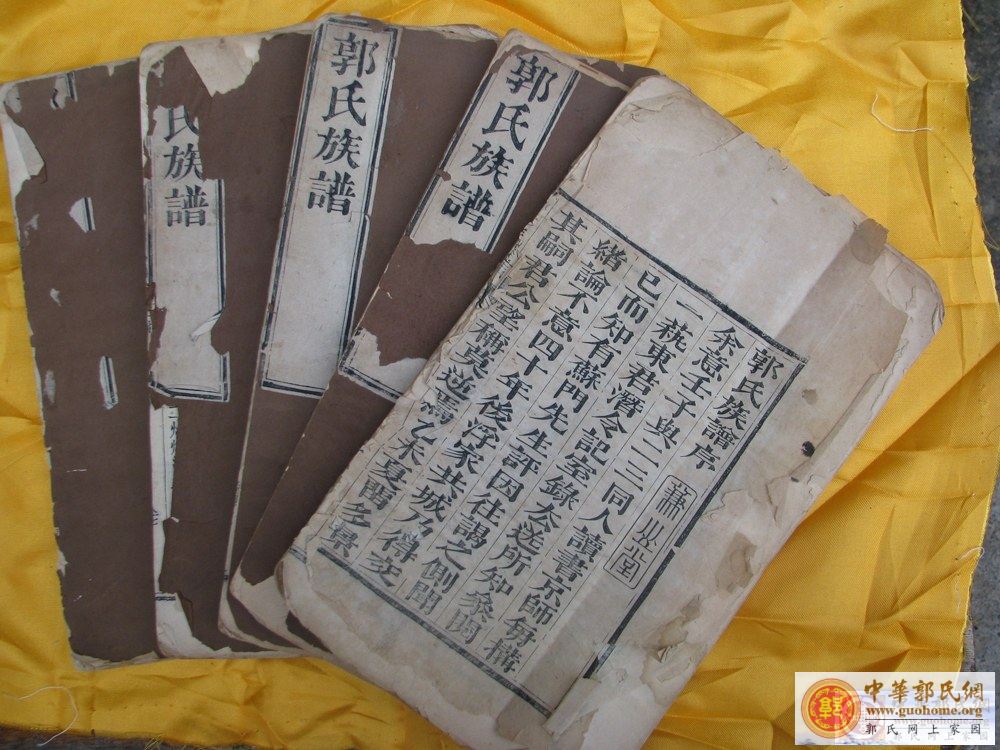 氏族譜
郭氏族譜
郭氏族譜
郭氏族譜序
余憶壬子與二三同人讀書京師每構
一蓺東君潛令記室錄公送所知參閱
已而知有蘇門先生評因往謁之側聞
緒論不意四十年後浮家共城乃得交
其嗣君公望稱莫逆焉乙未夏閏名彙
中華郭氏網
www.guohome.org
郭氏网上家园